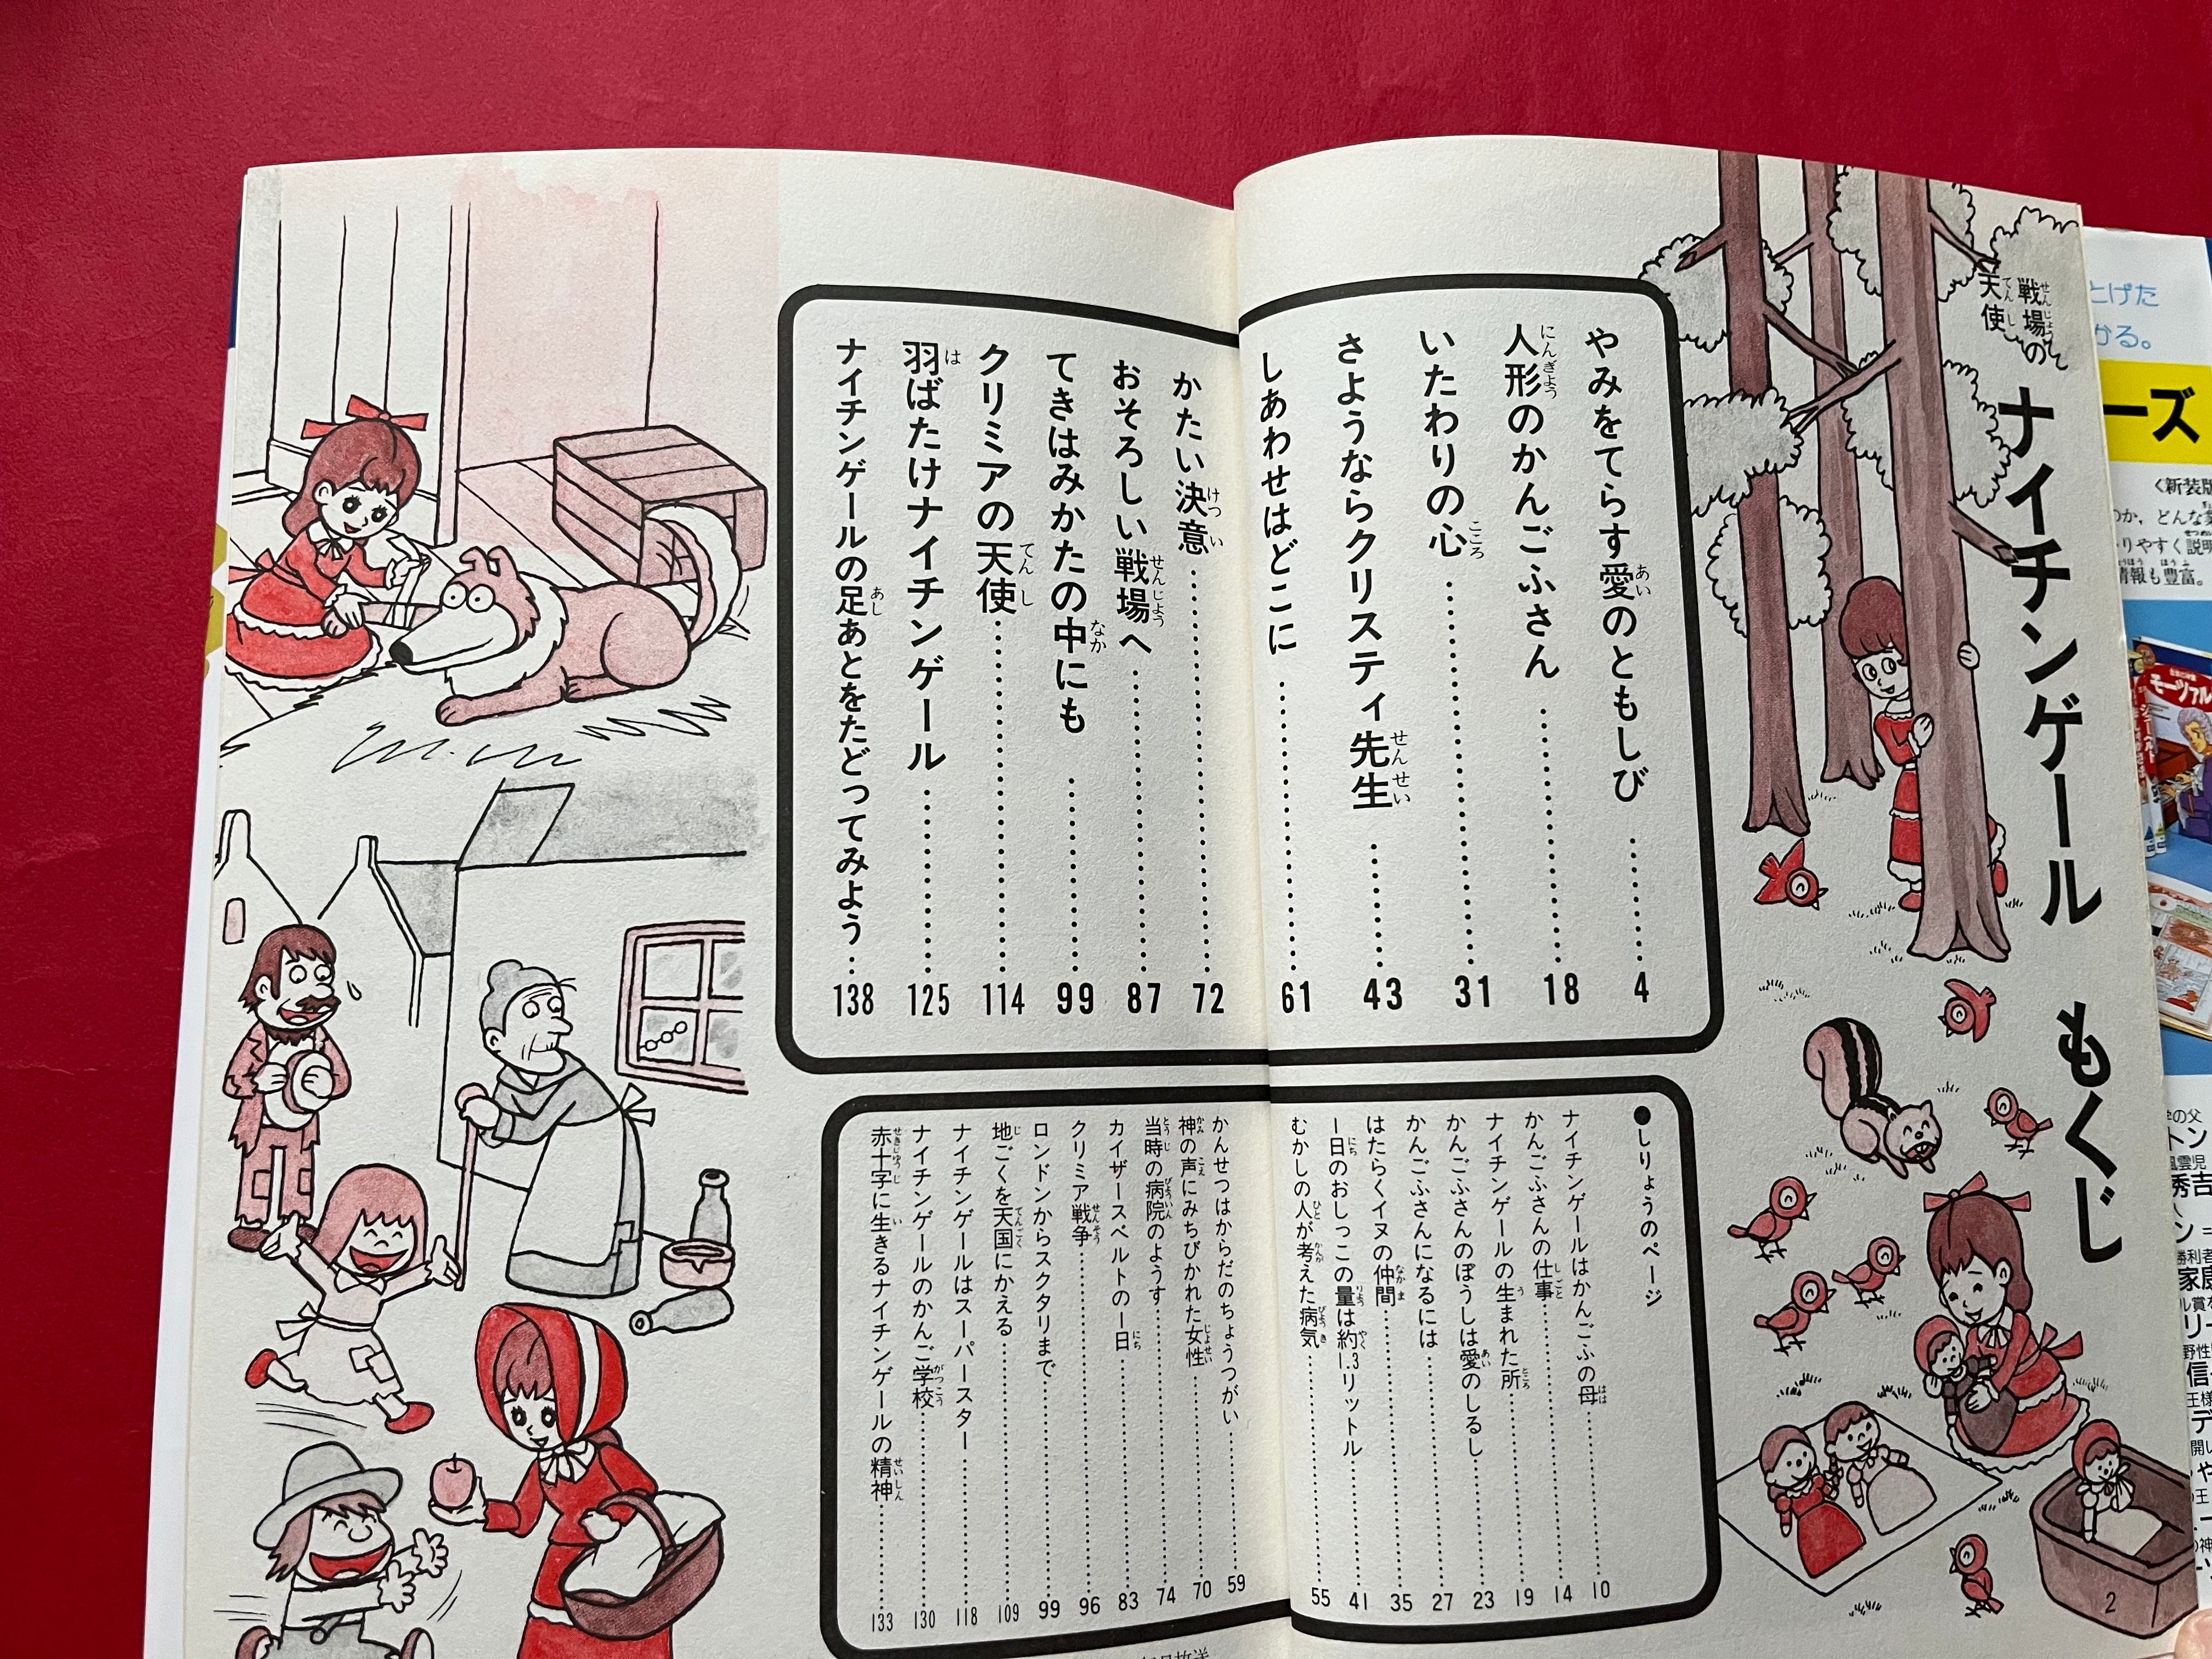 戦場の
天使
ナイチンゲール もくじ
やみをてらす愛のともしび……4
人形のかんごふさん……18
いたわりの心……31
さようならクリスティ先生……43
しあわせはどこに……61
かたい決意……72
おそろしい戦場へ……87
てきはみかたの中にも……99
クリミアの天使……114
羽ばたけナイチンゲール……125
ナイチンゲールの足あとをたどってみよう……138
●しりょうのページ
ナイチンゲールはかんごふの母……10
かんごふさんの仕事……14
ナイチンゲールの生まれた所……19
かんごふさんのぼうしは愛のしるし……23
かんごふさんになるには……27
はたらくイヌの仲間……35
1日のおしっこの量は約1.3リットル……41
むかしの人が考えた病気……55
かんせつはからだのちょうつがい……59
神の声にみちびかれた女性……70
当時の病院のようす……74
カイザースベルトの一日……83
クリミア戦争……96
ロンドンからスクタリまで……99
地ごくを天国にかえる……109
ナイチンゲールはスーパースター……118
ナイチンゲールのかんご学校……130
赤十字に生きるナイチンゲールの精神……133
2
とげた
かる。
ーズ
〈新装版
のか，どんな
りやすく説明
情報も豊富。
モーツァル
学の父
トン
風雲児
秀吉
勝利者
家康